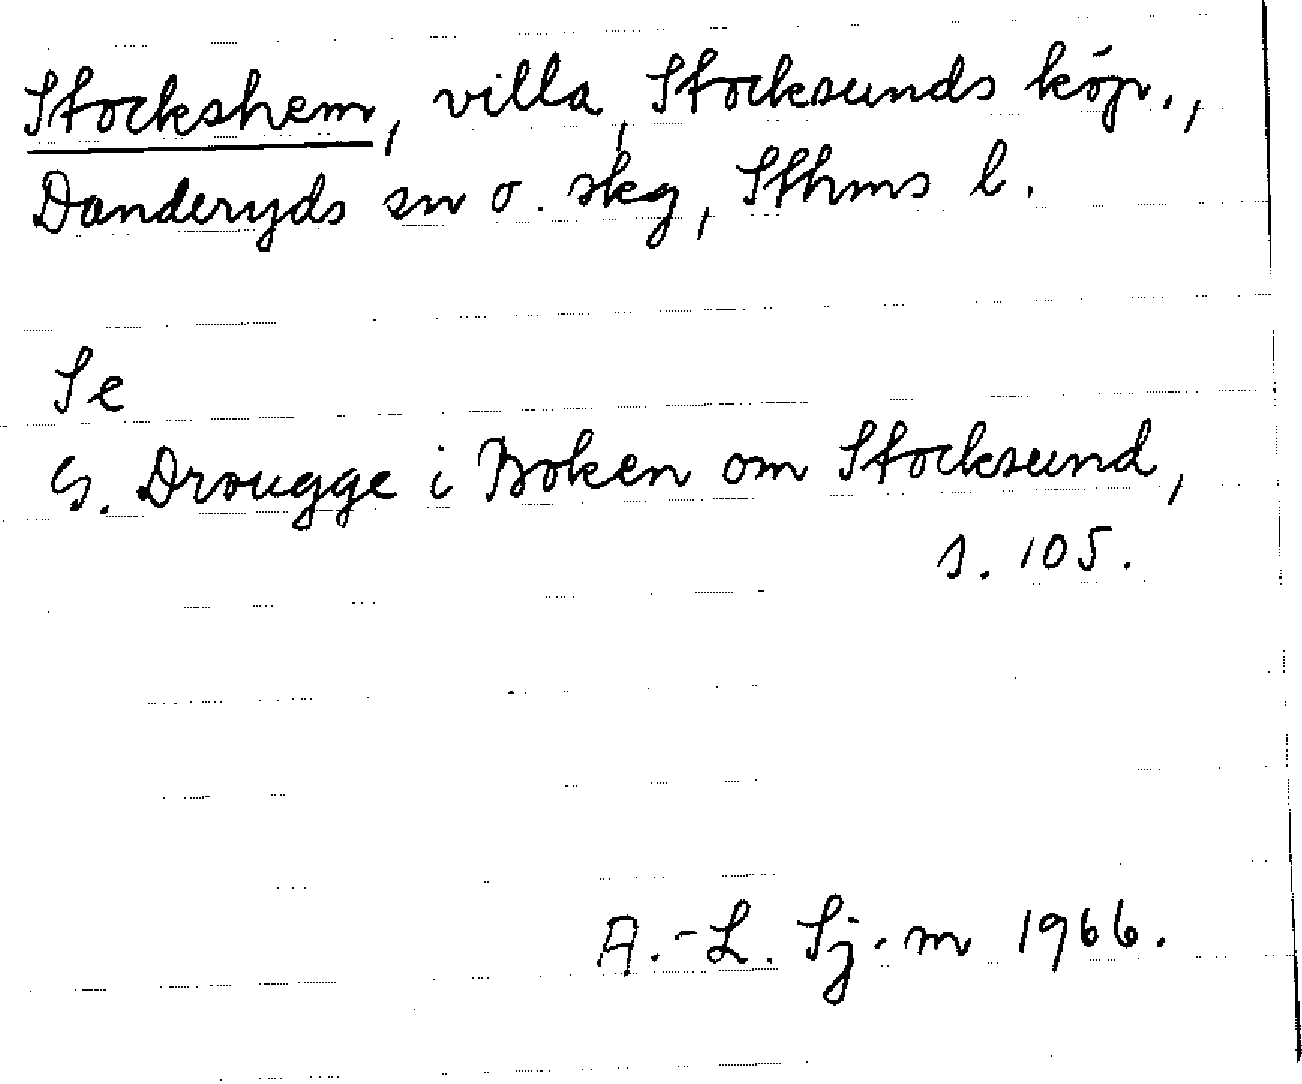 Stockshem, villa, Stocksunds köp.,
Danderyds sn o. skg, Sthms l.
Se
G. Drougge i Boken om Stocksund,
s. 105.
A.-L. Sj.-m 1966.